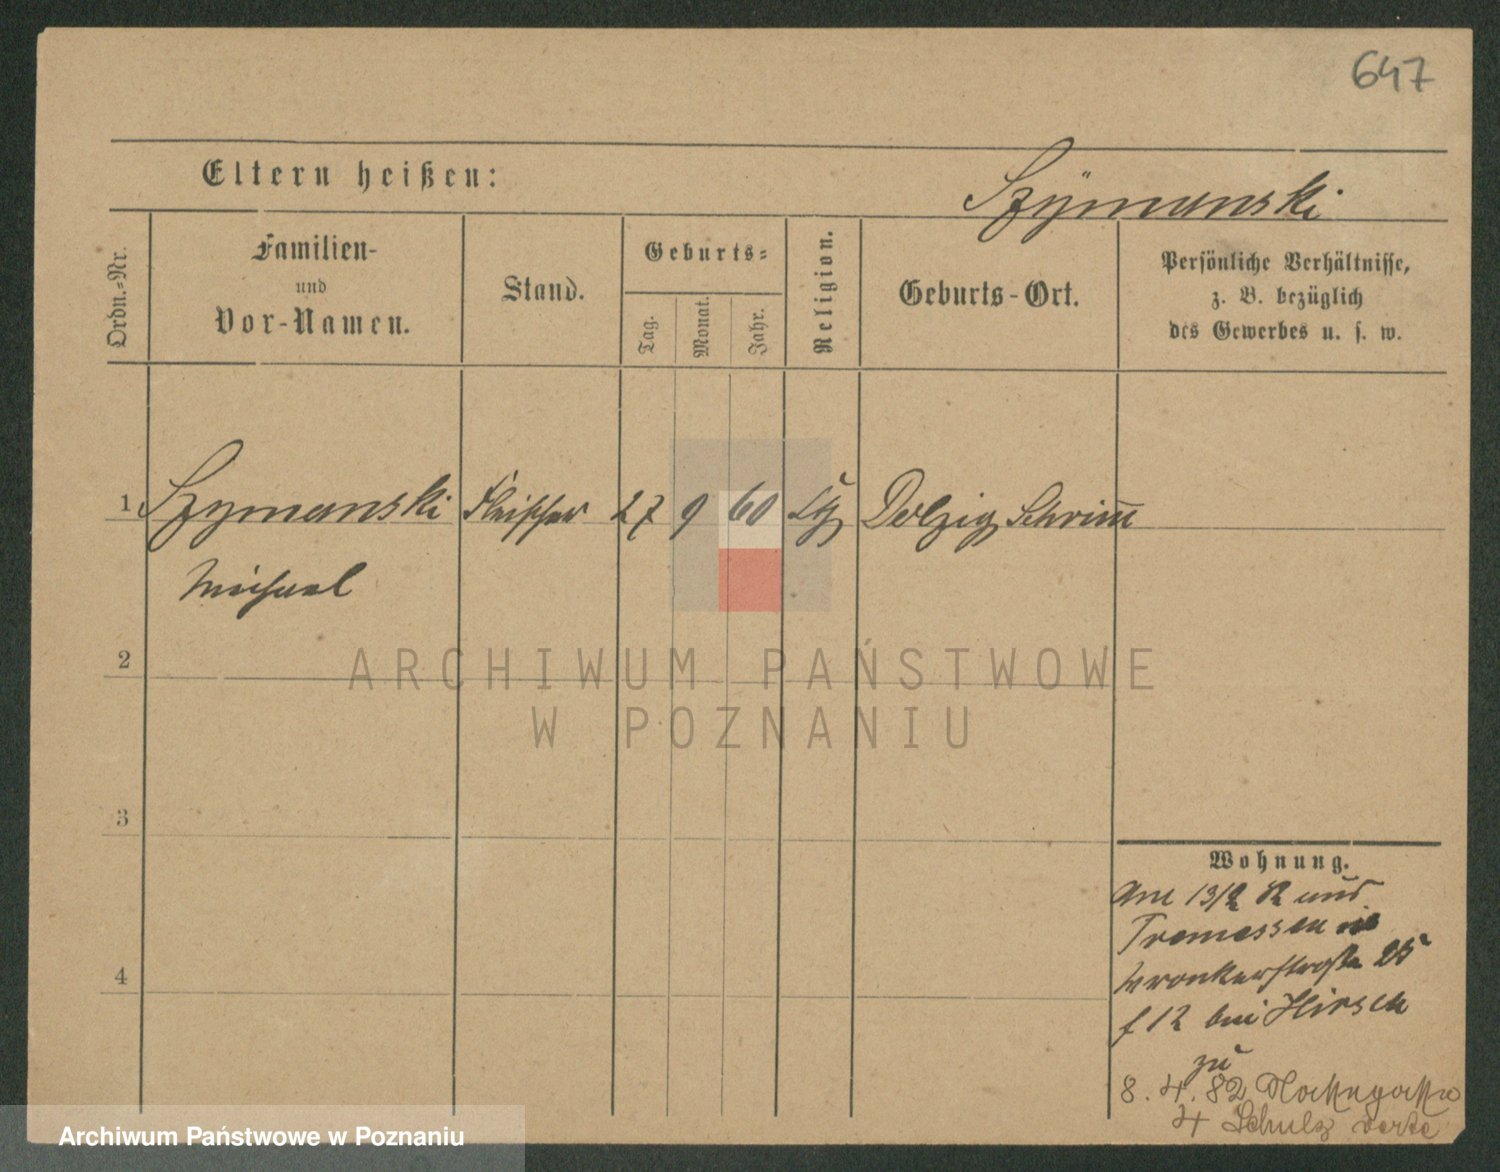 647
Eltern heißen:
Szÿmanski
Ordn.-Nr.
Familien-
und
Vor-Namen.
Stand.
Geburts-
Tag.
Monat.
Jahr.
Religion.
Geburts-Ort.
Persönliche Verhältnisse,
z. B. bezüglich
des Gewerbes u. s. w.
1 Szymanski Fleischer 27 9 60 Dolzig Schrim̅
Michael
2
ARCHIWUM PAŃSTWOWE
W POZNANIU
3
4
Wohnung.
Am 13/2 82 aus
Tremessen
Wronkerstraße 25
f 12 bei Hirsch
zu
8. 4. 82
4 Schulz verte
Archiwum Państwowe w Poznaniu